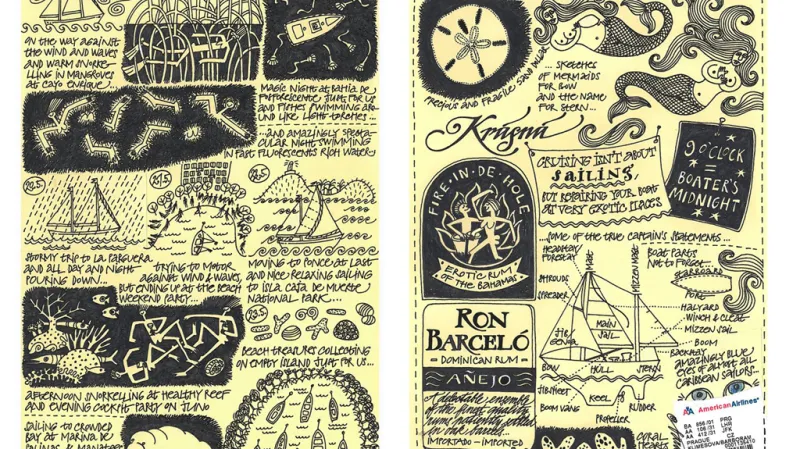 ON THE WAY AGAINST
THE WIND AND WAVES
AND WARM SNORKE-
LLING IN MANGROVES
AT CAYO ENRIQUE.
MAGIC NIGHT AT BAHIA DE
FOSFORESCENTE JUST FOR US
AND FISHES SWIMMING ARO-
UND LIKE LIGHT TORCHES...
...AND AMAZINGLY SPECTA-
CULAR NIGHT SWIMMING
IN FAST FLUORESCENTS RICH WATER
20.5
21.5
22.5
STORMY TRIP TO LA PARGUERA
AND ALL DAY AND NIGHT
POURING DOWN...
TRYING TO MOTOR
AGAINST WIND & WAVES,
BUT ENDING UP AT THE BEACH
WEEKEND PARTY...
MOVING TO PONCE AT LAST
AND NICE RELAXING SAILING
TO ISLA CAJA DE MUERTE
NATIONAL PARK...
23.5
BEACH TREASURES COLLECTING
ON EMPTY ISLAND JUST FOR US...
AFTERNOON SNORKELLING AT HEALTHY REEF
AND EVENING COCKTIS PARTY ON JUNO
SAILING TO CROWDED
BAY AT MARINA DE
SALINAS & MANATEE
PRECIOUS AND FRAGILE SAND DOLLAR
... SKETCHES
OF MERMAIDS
FOR BOW
AND THE NAME
FOR STERN...
Krásnú
CRUISING ISN'T ABOUT
SAILING,
BUT REPAIRING YOUR BOAT
AT VERY EXOTIC PLACES
9 O'CLOCK
=
BOATER'S
MIDNIGHT
...SOME OF THE TRUE CAPTAIN'S STATEMENTS...
FIRE·IN·DE·HOLE
EROTIC RUM
OF THE BAHAMAS
HEADSTAY
FORESTAY
SHROUDS
SPREADER
MAST
MIZZEN MAST
BOAT PARTS
NOT TO FORGET...
STARBOARD
PORT
HALYARD
WINCH & CLEAT
MIZZEN SAIL
MAIN
SAIL
JIB/
GENOA
BOOM
BACKSTAY
BOW
HULL
STERN
JIB SHEET
BOOM VANG
KEEL
RUDDER
PROPELLER
AMAZINGLY BLUE
EYES OF ALMOST ALL
CARIBBEAN SAILORS...
RON
BARCELÓ
- DOMINICAN RUM -
AÑEJO
A delectable ensemble
of the first quality
rum patiently
IMPORTADO - IMPORTED
CORAL
HEARTS
AA AmericanAirlines
BA 856/01 PRG
AA 106/01 LHR
AA 412/01 JFK
PRAGUE CZ
KLIMESOVA/BARBORAM